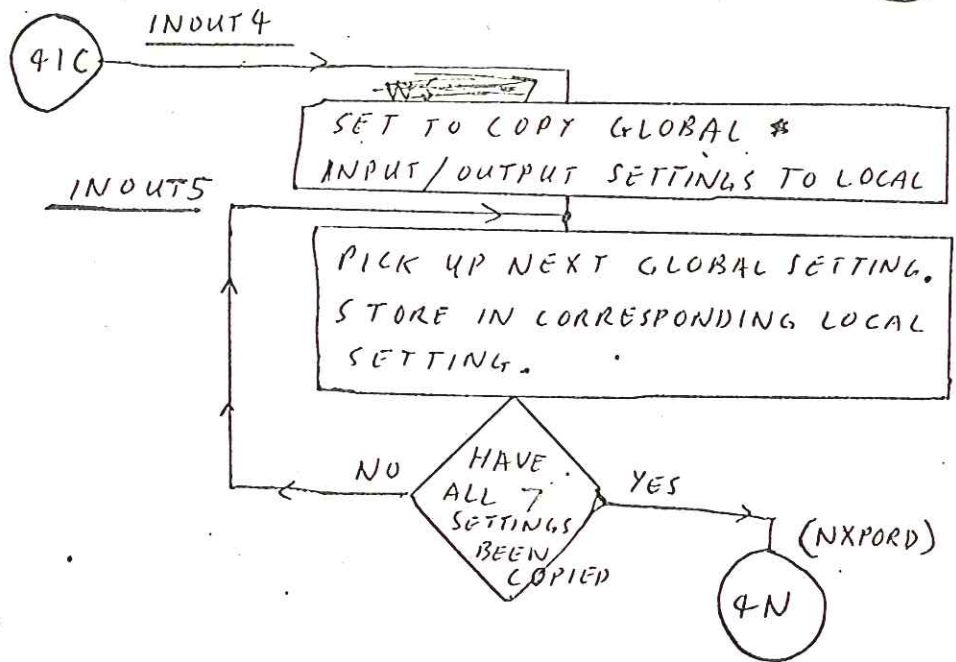 INOUT4
41C
SET TO COPY GLOBAL *
INPUT/OUTPUT SETTINGS TO LOCAL
INOUT5
PICK UP NEXT GLOBAL SETTING.
STORE IN CORRESPONDING LOCAL
SETTING.
NO
HAVE
ALL 7
SETTINGS
BEEN
COPIED
YES
(NXPORD)
4N